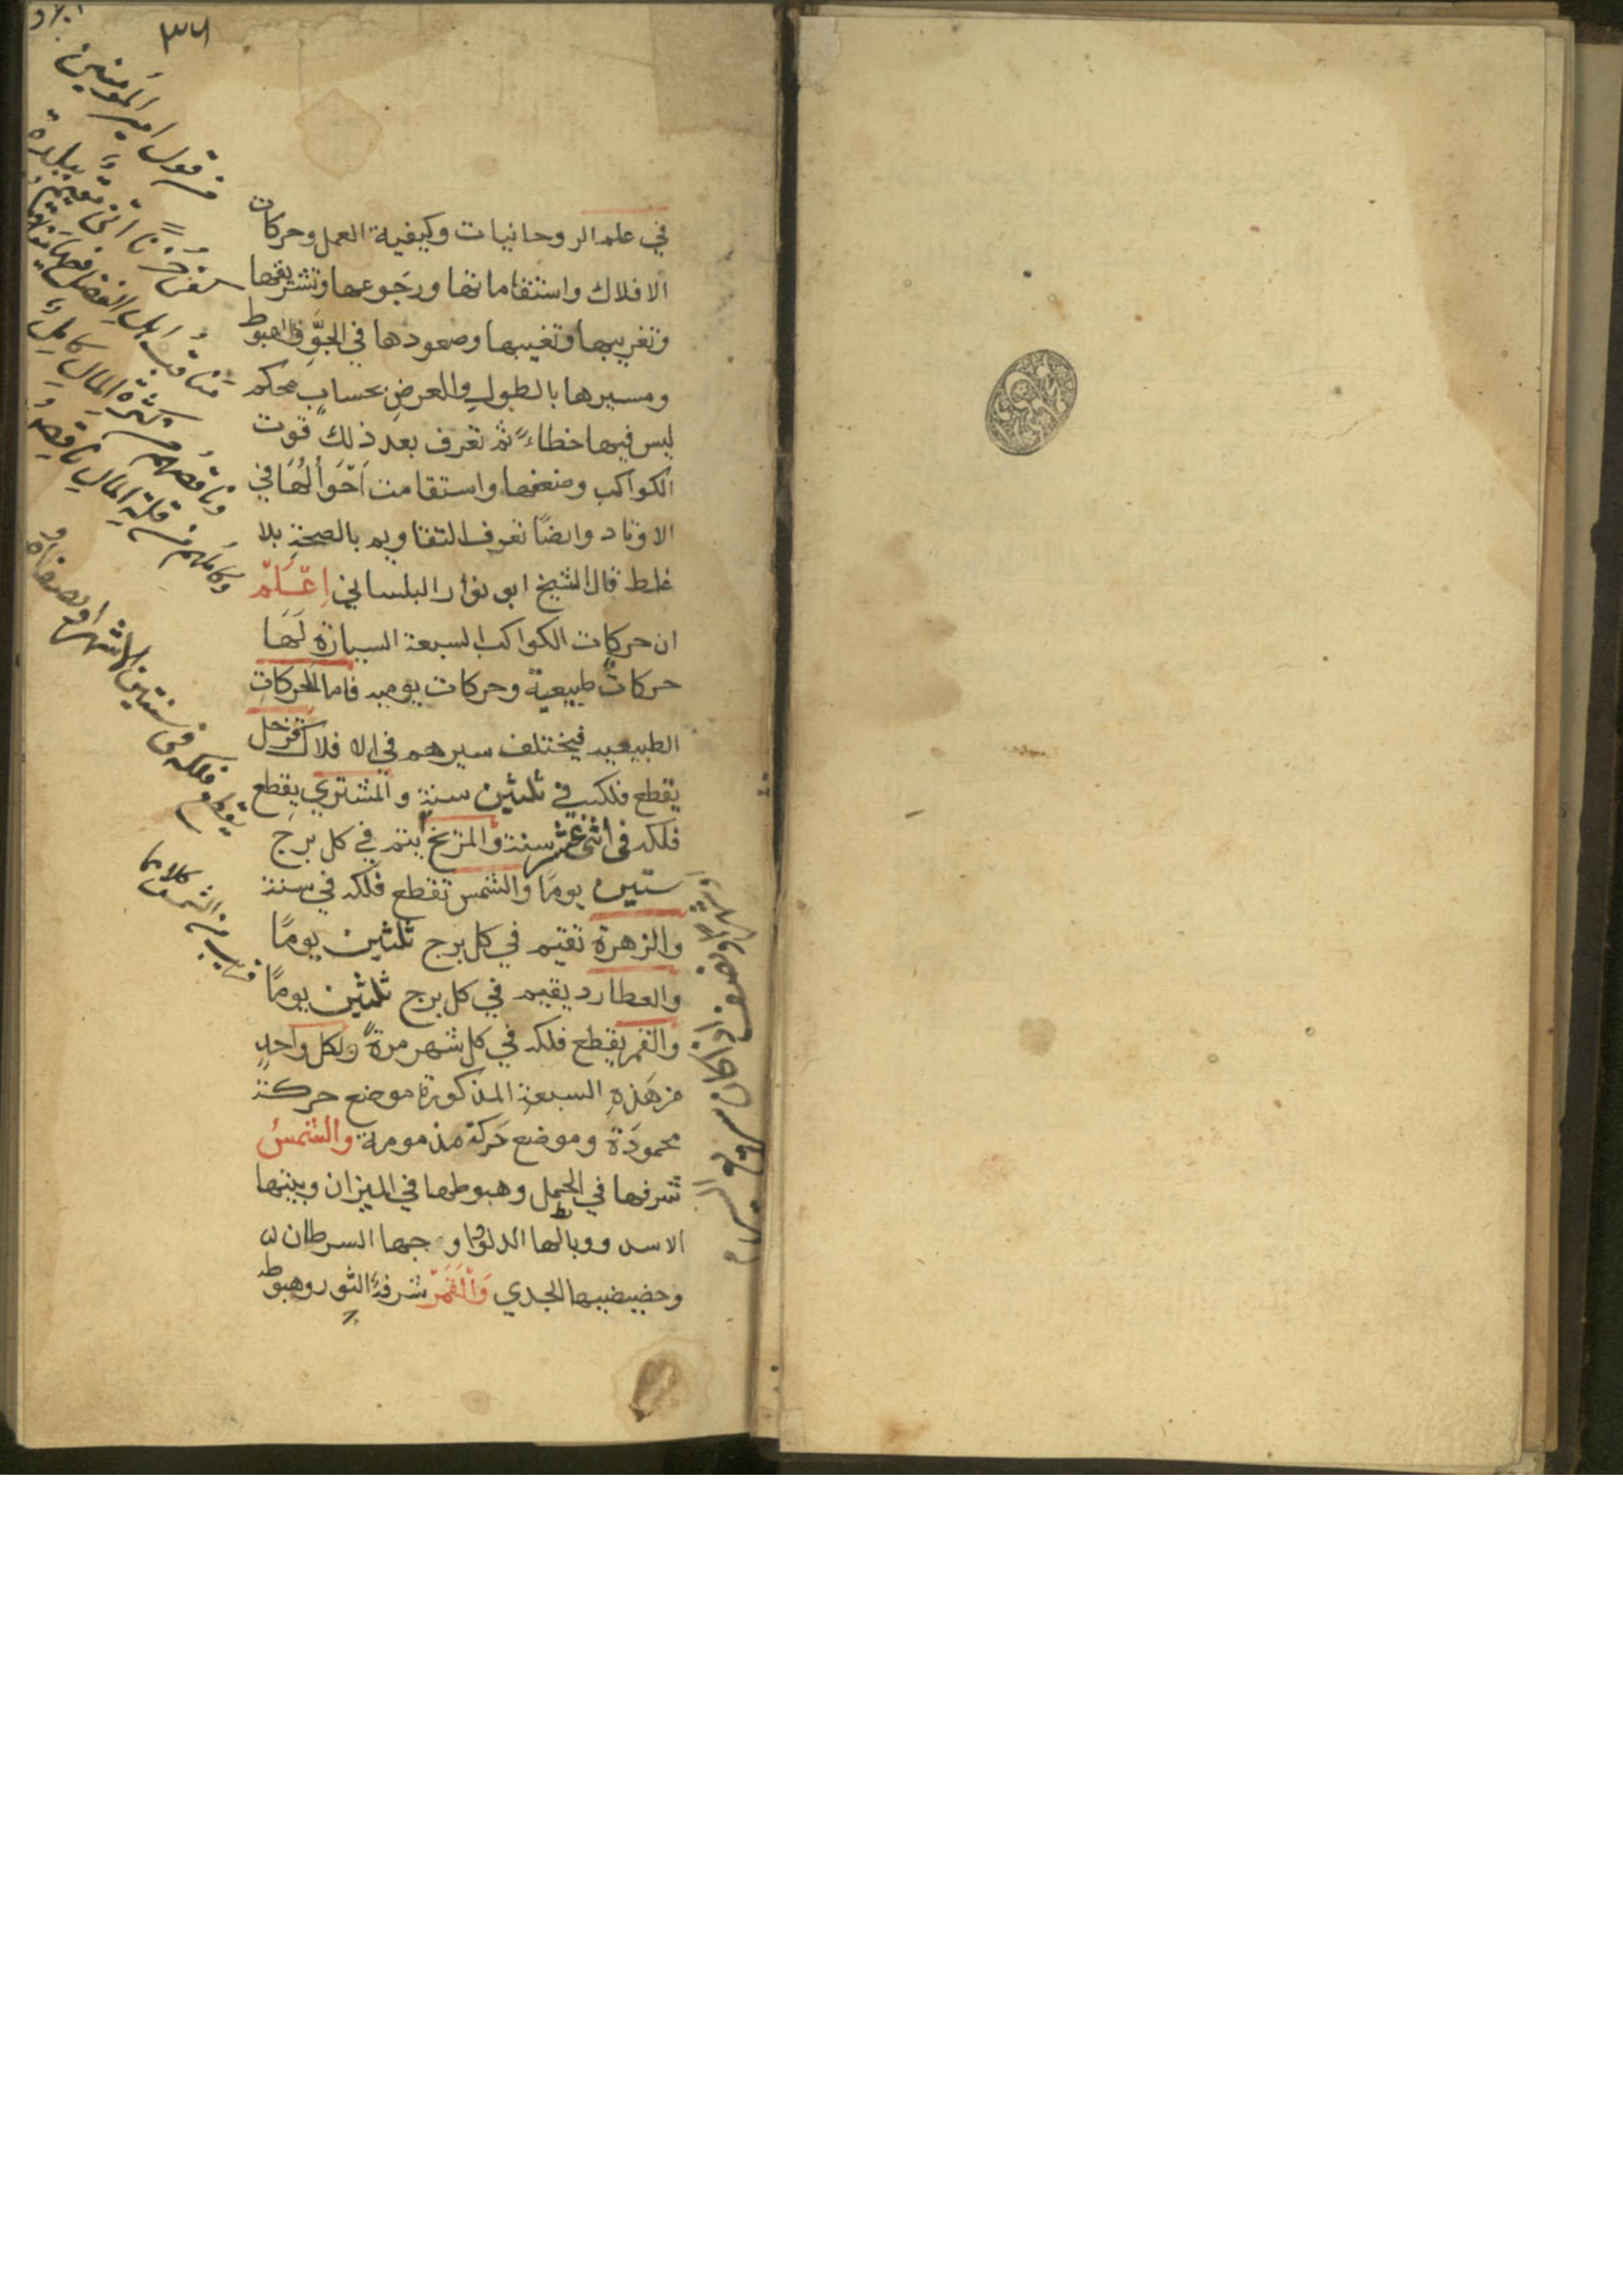 ٣٧١
في علم الروحانيات وكيفية العمل وحركات
الافلاك واستقاماتها ورجوعها وتشريقها
وتغريبها وتغيبها وصعودها في الجوّ والهبوط
ومسيرها بالطول والعرض بحساب محكم
ليس فيها خطاء ثم تعرف بعد ذلك قوت
الكواكب وضعفها واستقامت احوالها في
الاوتاد وايضًا تعرف التقاويم بالصحة بلا
غلط قال الشيخ ابو نوار البلساني اعلم
ان حركات الكواكب السبعة السيارة لها
حركات طبيعية وحركات يوميه فاما الحركات
الطبيعيه فيختلف سيرهم في الافلاك فزحل
يقطع فلكه في ثلثين سنة والمشتري يقطع
فلكه فى اثنى عشر سنة والمريخ يتم في كل برج
ستين يومًا والشمس تقطع فلكه في سنة
والزهرة تقيم في كل برج ثلثين يومًا
والعطارد يقيم في كل برج ثلثين يومًا
والقمر يقطع فلكه في كل شهر مرةً ولكل واحدٍ
من هذه السبعة المذكورة موضع حركة
محمودة وموضع حركة مذمومة والشمس
شرفها في الحمل وهبوطها في الميزان وبيتها
الاسد ووبالها الدلو واوجها السرطان
وحضيضها الجدي والقمر شرفه الثور وهبوط
من قول امير المؤمنين
كفى حُزنًا انى مقيم ببلدة
مناقب اهل الفضل فيها
وناقصهم من كثرة المال كاملٌ
وكاملهم من قلة المال ناقصٌ